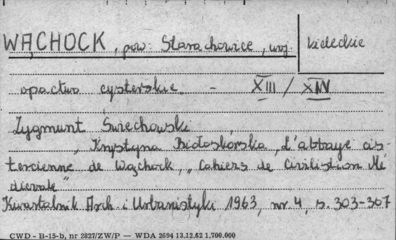 WĄCHOCK, pow: Starachowice, woj. kieleckie
opactwo cysterskie - XIII / XIV
Zygmunt Święchowski,
Krystyna Białoskórska, L'abbaye cis
tercienne de Wąchock, „Cahiers de Civilistion Mé
diévale"
Kwartalnik Arch. i Urbanistyki 1963, nr. 4, s. 303-307
CWD - B-15-b, nr 2827/ZW/P — WDA 2694 13.12.62 1.700.000